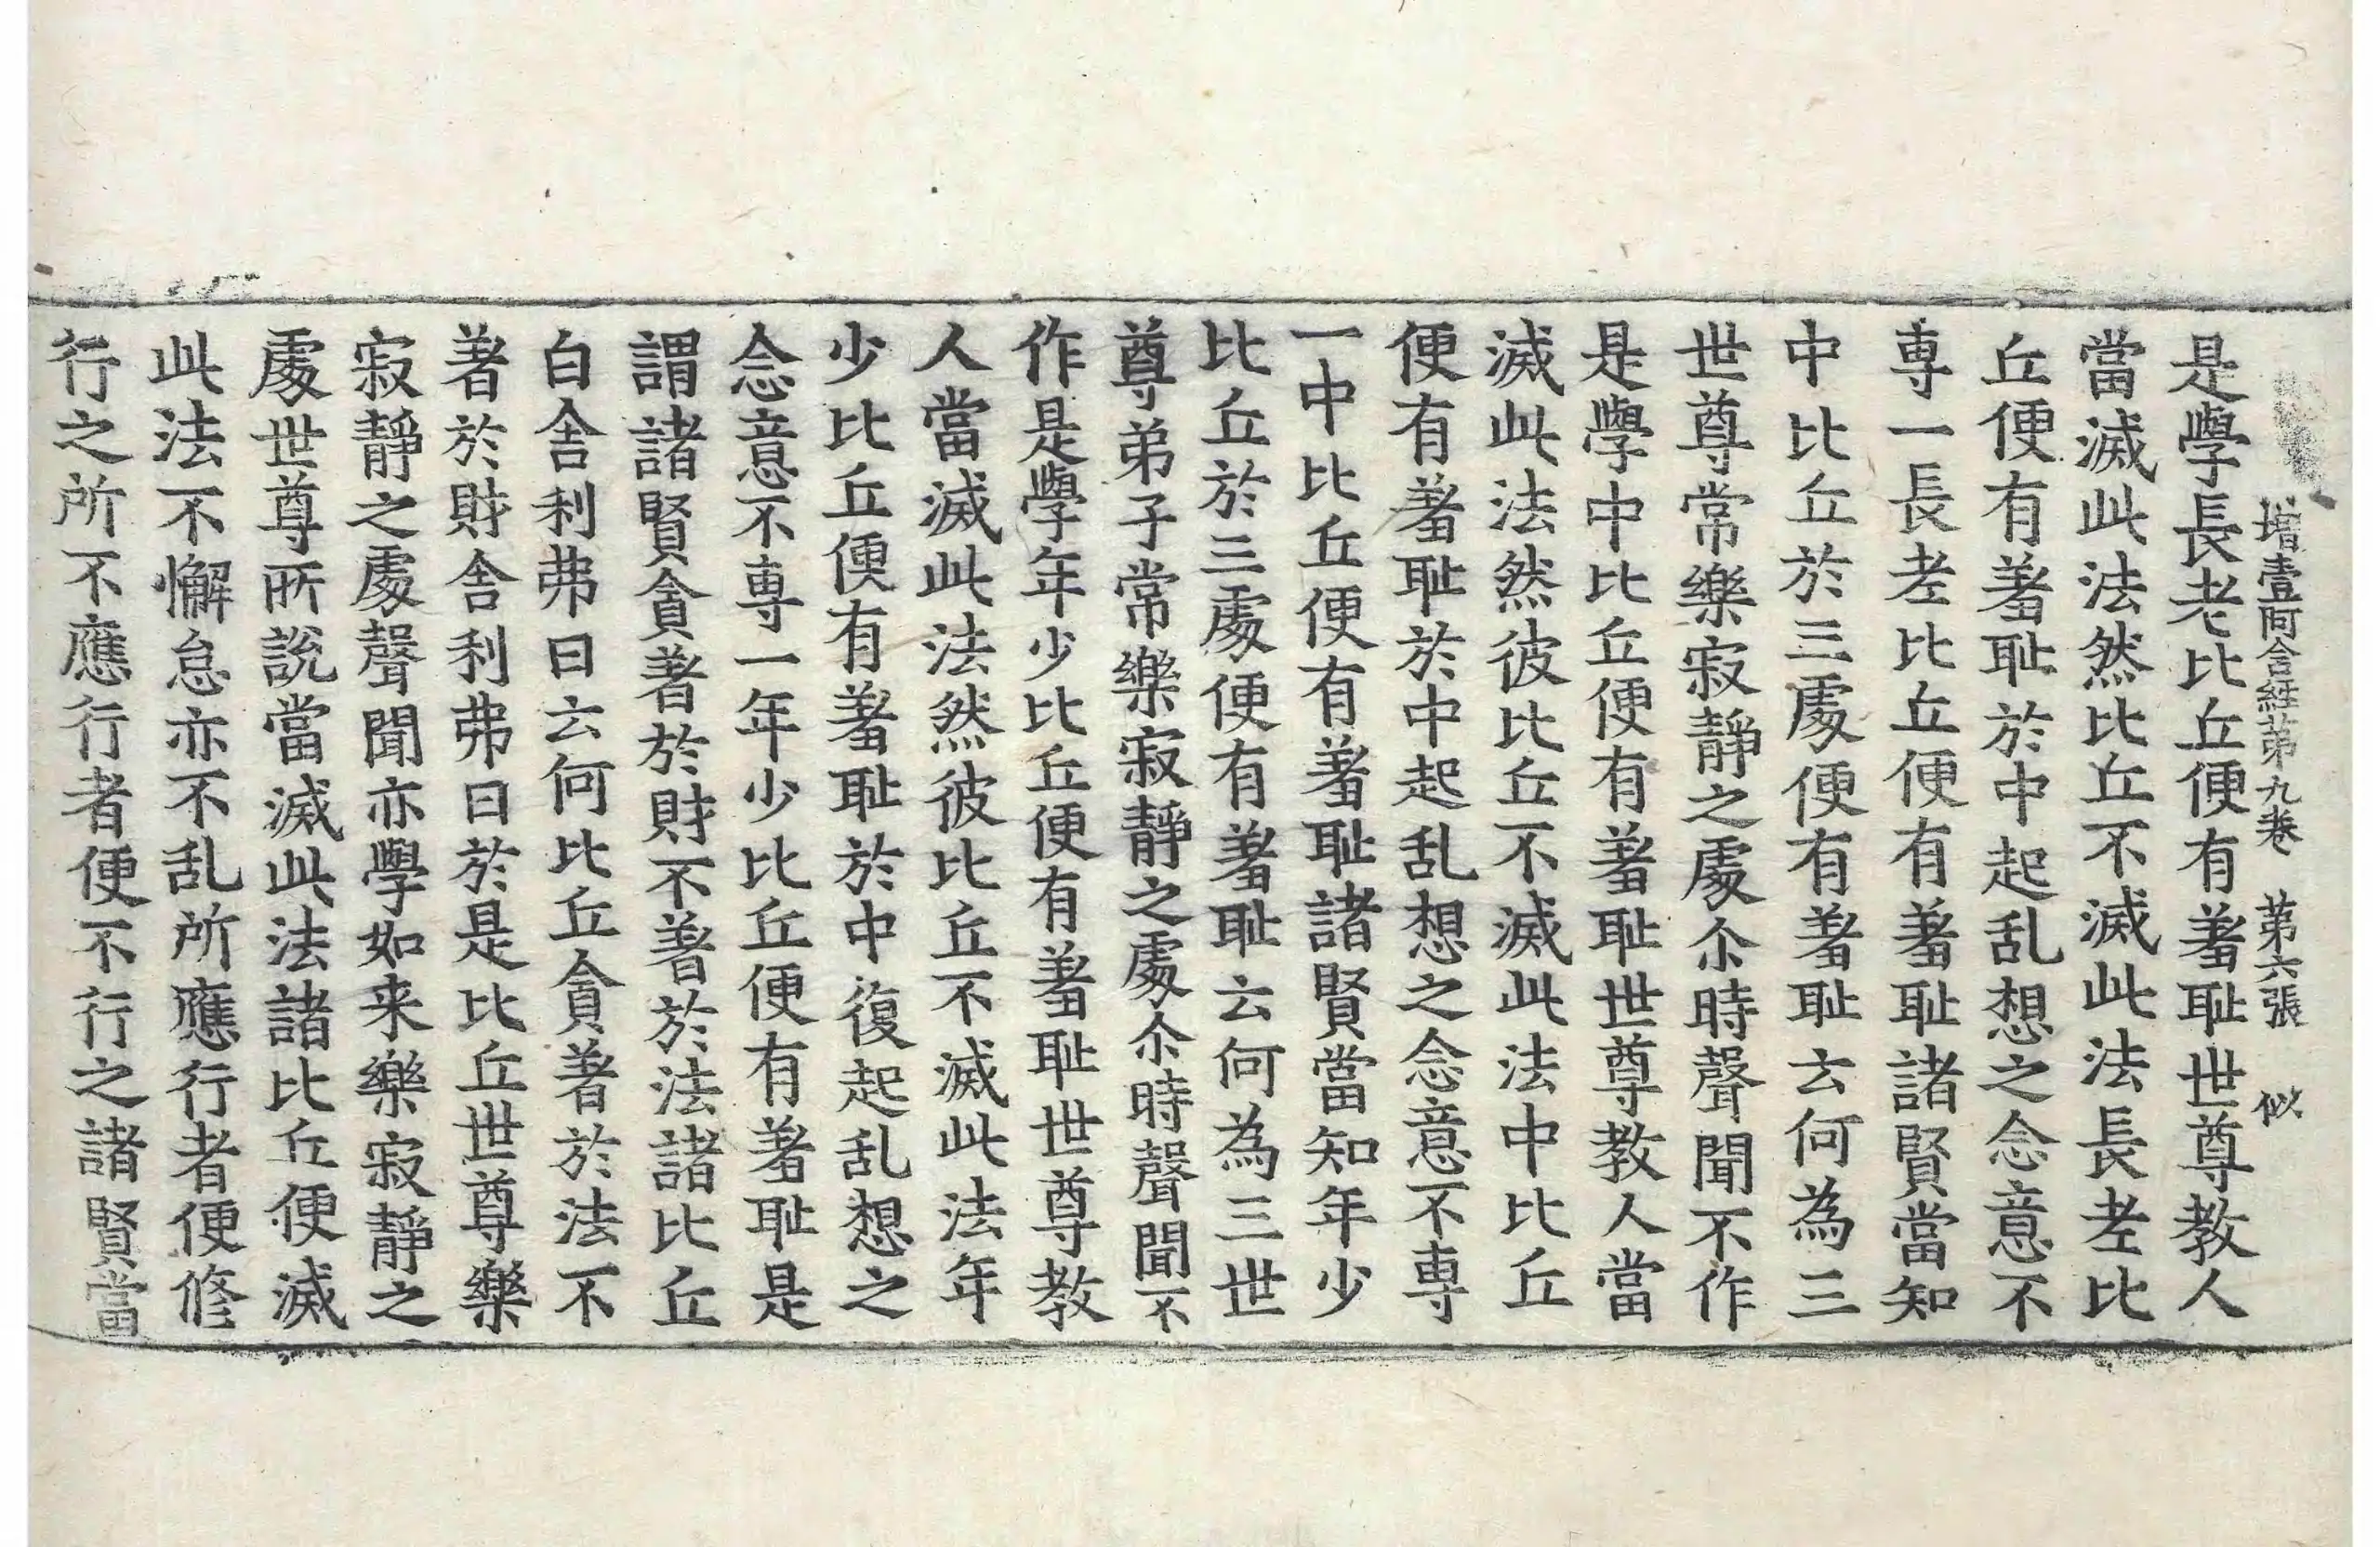 增壹阿含経苐九卷 苐六張 似
是學長老比丘便有羞耻世尊教人
當滅此法然比丘不滅此法長老比
丘便有羞耻於中起乱想之念意不
専一長老比丘便有羞耻諸賢當知
中比丘於三處便有羞耻云何為三
世尊常樂寂靜之處尒時聲聞不作
是學中比丘便有羞耻世尊教人當
滅此法然彼比丘不滅此法中比丘
便有羞耻於中起乱想之念意不専
一中比丘便有羞耻諸賢當知年少
比丘於三處便有羞耻云何為三世
尊弟子常樂寂靜之處尒時聲聞不
作是學年少比丘便有羞耻世尊教
人當滅此法然彼比丘不滅此法年
少比丘便有羞耻於中復起乱想之
念意不専一年少比丘便有羞耻是
謂諸賢貪著於財不著於法諸比丘
白舍利弗曰云何比丘貪著於法不
著於財舍利弗曰於是比丘世尊樂
寂靜之處聲聞亦學如来樂寂靜之
處世尊所說當滅此法諸比丘便滅
此法不懈怠亦不乱所應行者便修
行之所不應行者便不行之諸賢當